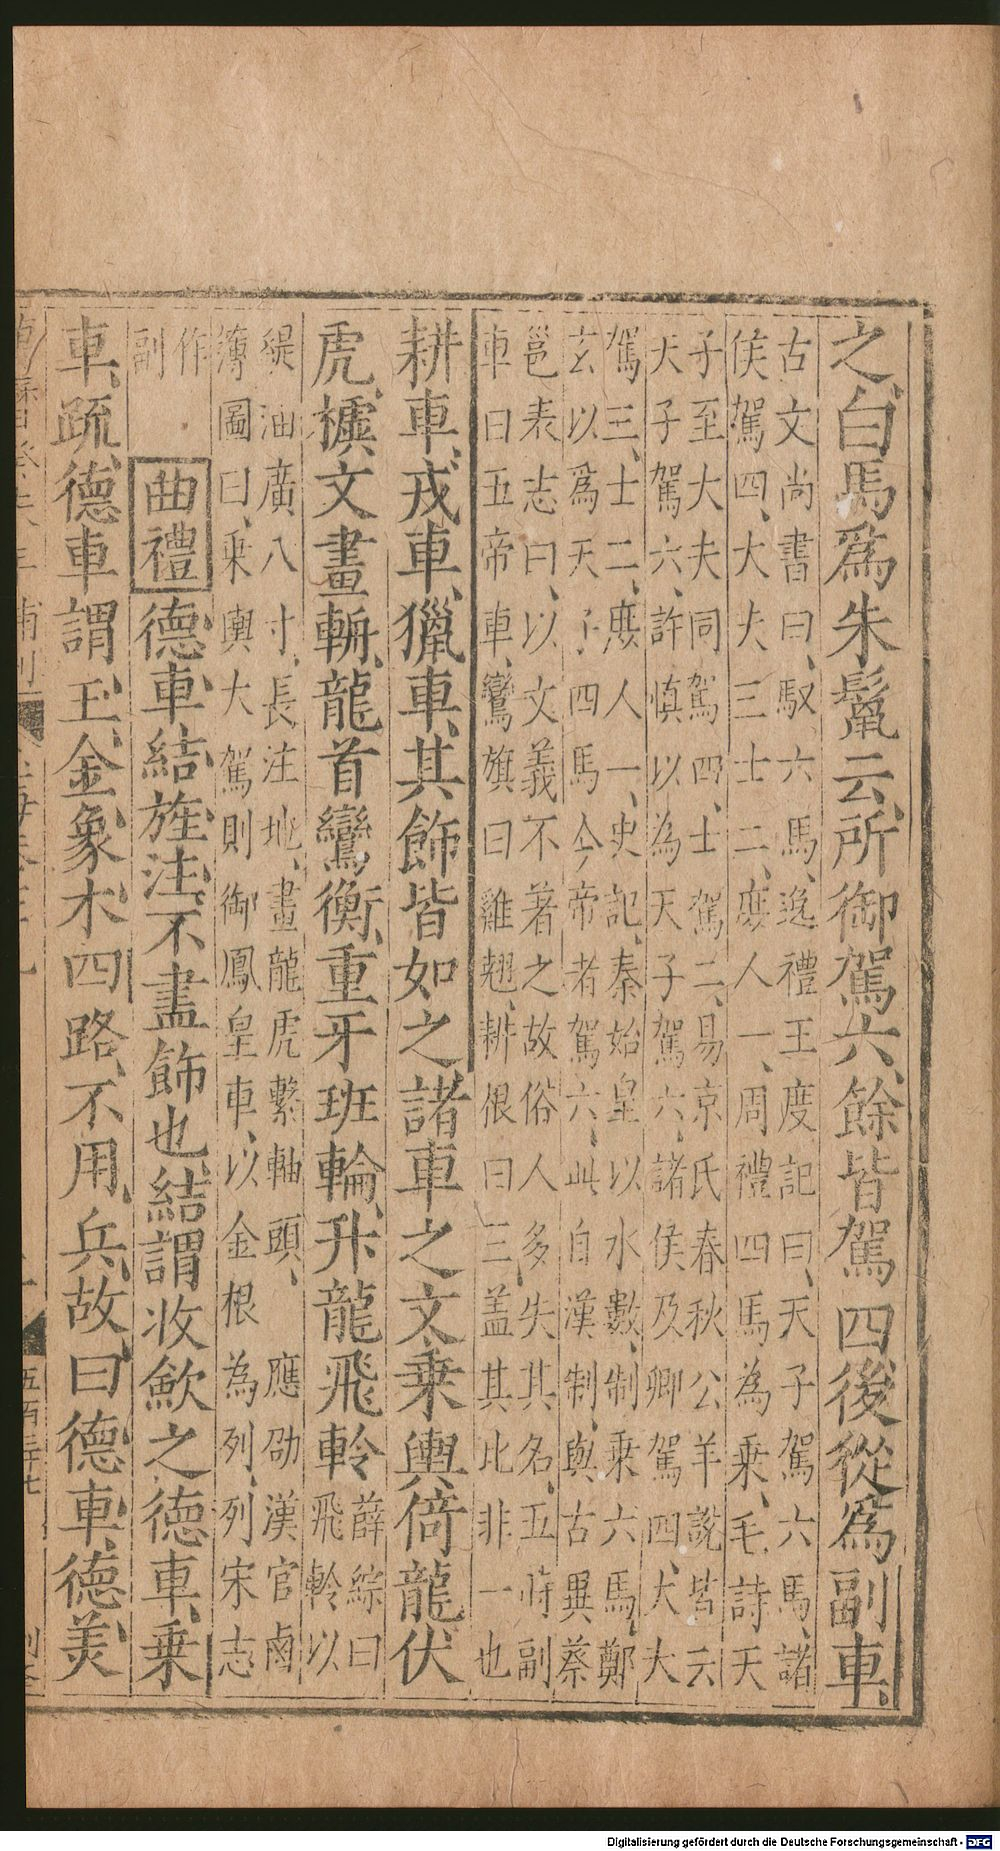 之、白馬爲朱鬣云、所御駕六、餘皆駕四後從爲副車、
古文尚書曰、馭六馬、逸禮王度記曰、天子駕六馬、諸
侯駕四、大夫三士二、庶人一、周禮四馬為乘、毛詩天
子至大夫同駕四、士駕二、易京氏春秋公羊說皆云
天子駕六、許慎以為天子駕六、諸侯及卿駕四、大夫
駕三、士二、庶人一、史記、秦始皇以水數、制乘六馬、鄭
玄以爲天子四馬今帝者駕六、此自漢制、與古異蔡
邕表志曰、以文義不著之故俗人多失其名、五時副
車曰五帝車、鸞旗曰雞翹、耕根曰三盖其比非一也
耕車、戎車、獵車、其飾皆如之諸車之文、乘輿倚龍伏
虎、㯫文畫輈、龍首鸞衡、重牙班輪、升龍飛軨
薛綜曰
飛軨以
緹油廣八寸、長注地、畫龍虎繫軸頭、 應劭漢官鹵
簿圖曰、乘輿大駕則御鳳皇車、以金根為列、列宋志
作
副
曲禮德車、結旌、注、不盡飾也結謂收斂之德車、乘
車、疏、德車謂、玉、金、象、木、四路、不用、兵、故、曰德車、德美、
五百三十七
Digitalisierung gefördert durch die Deutsche Forschungsgemeinschaft - DFG